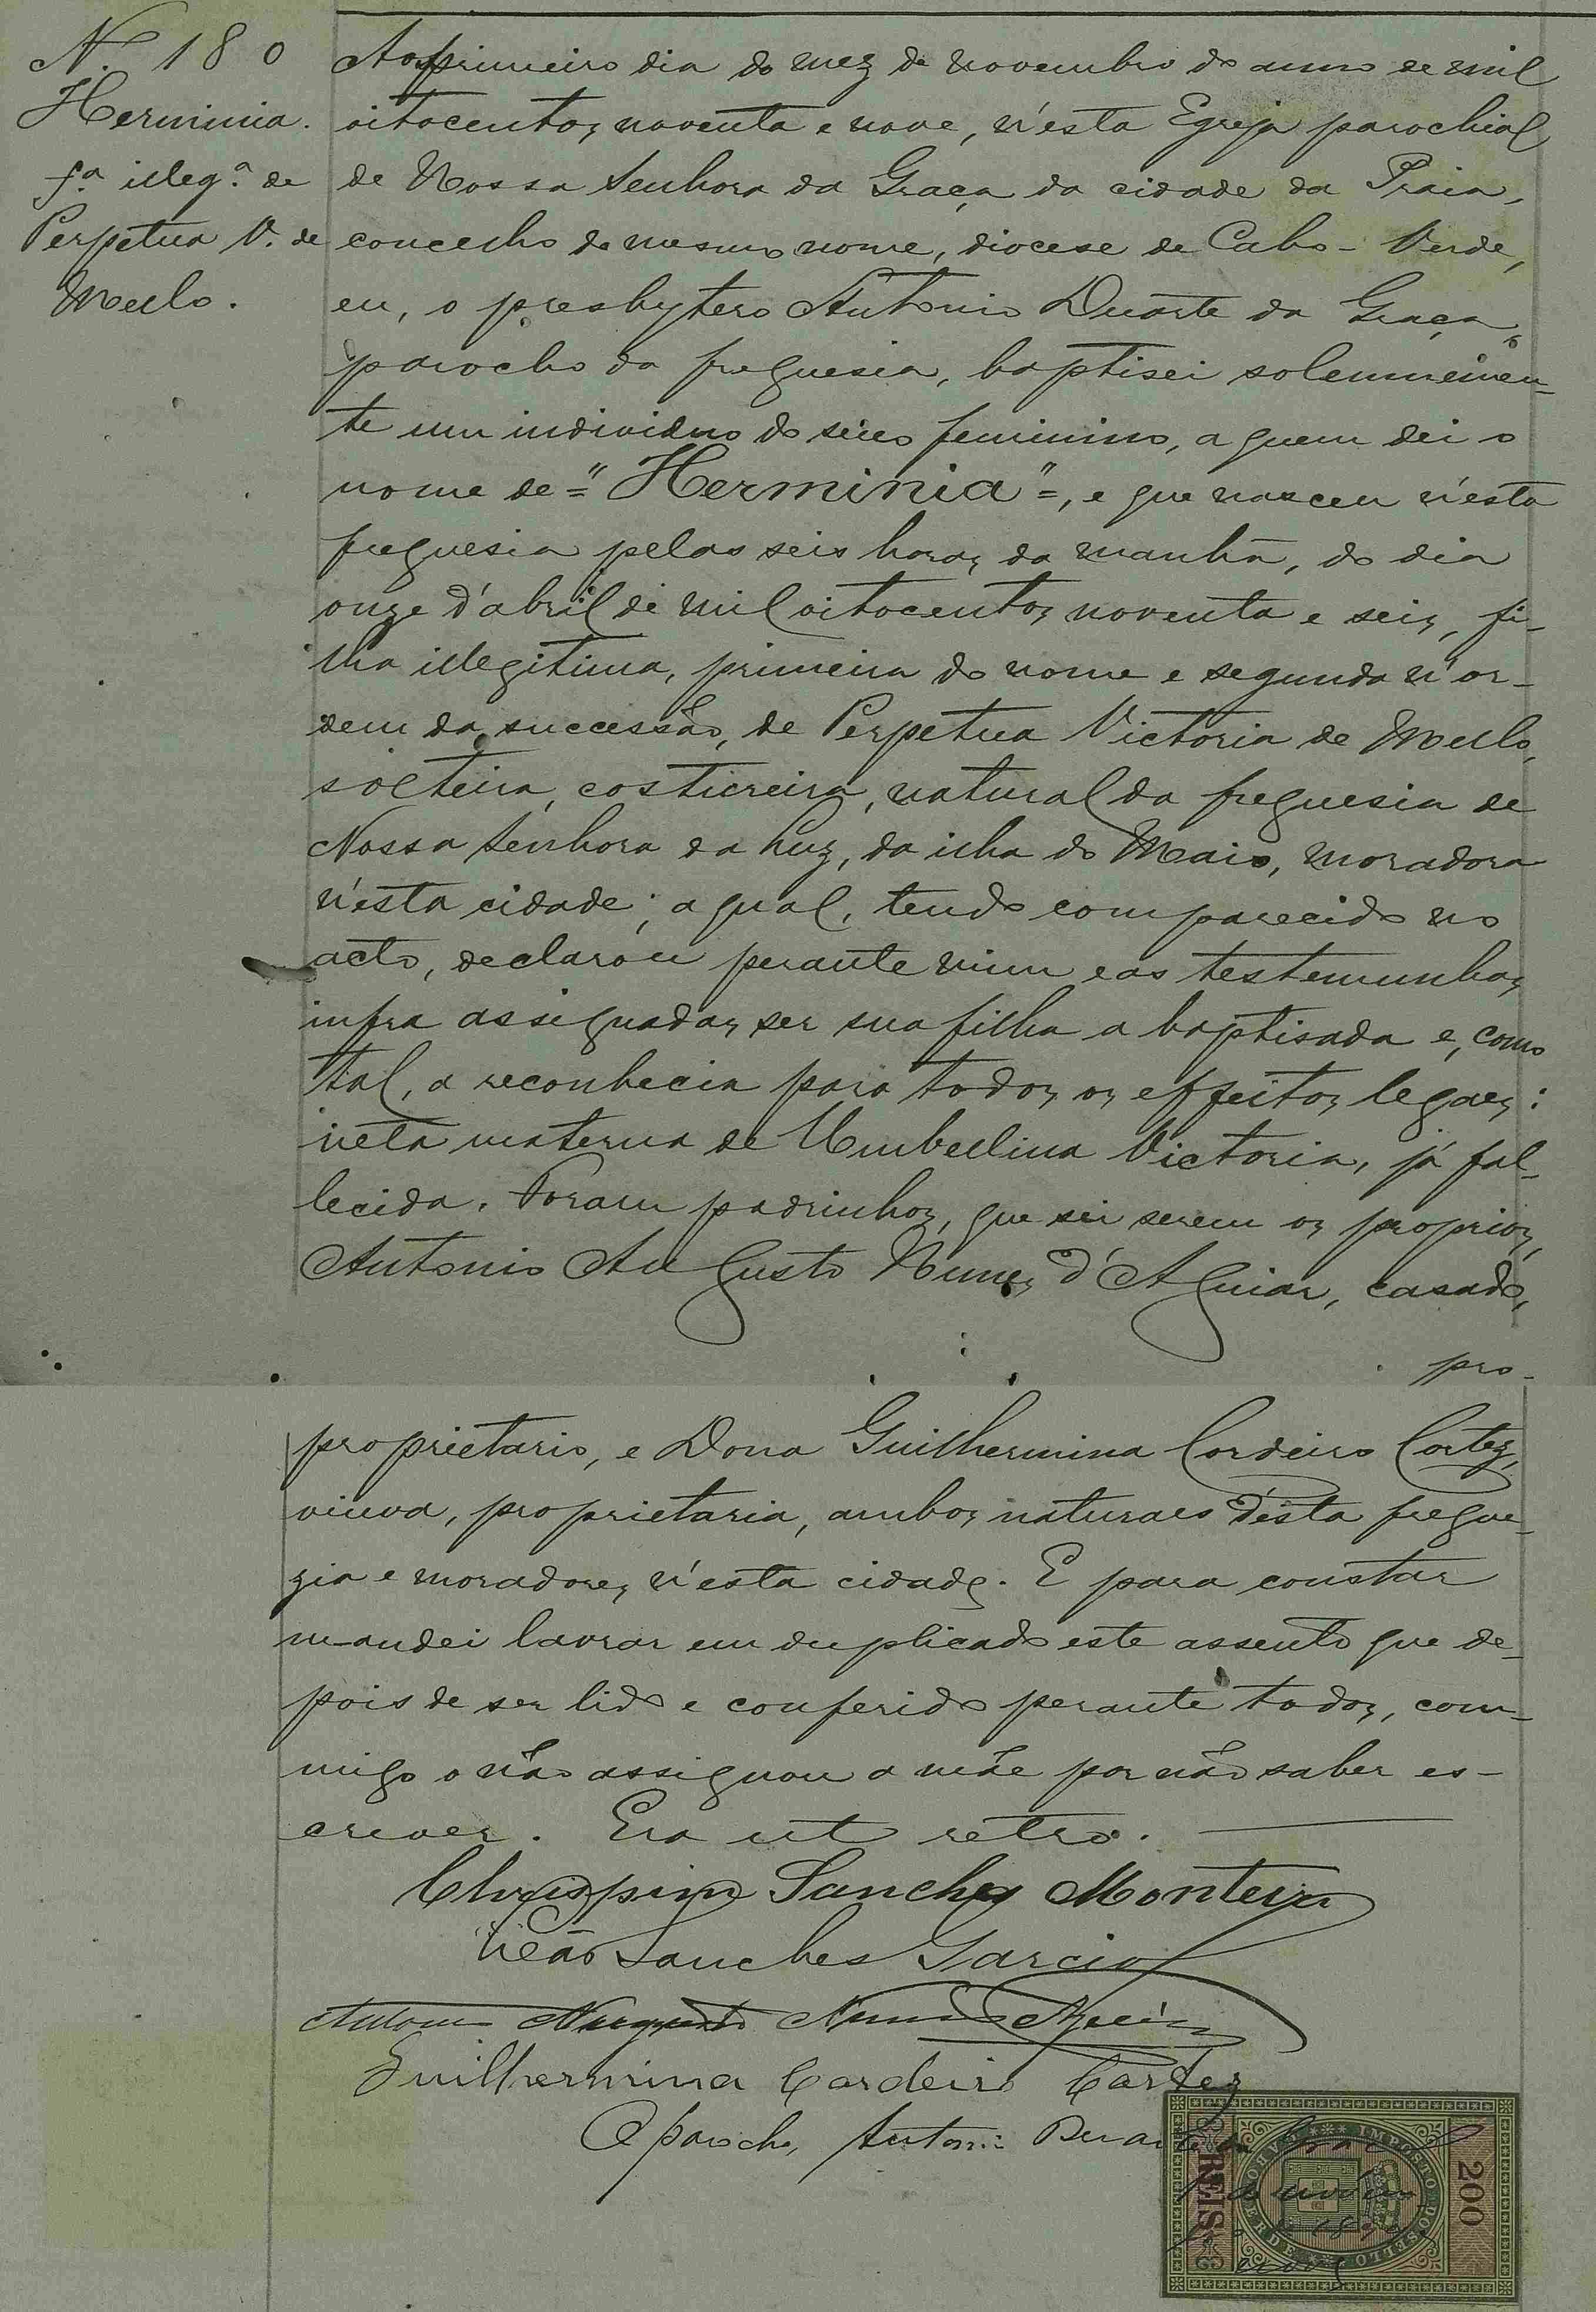 N.º 180
Herminia.
f.ª illeg.ª de
Perpetua V. de
Mello.
Ao primeiro dia do mez de novembro do anno de mil
oitocentos noventa e nove, n'esta Egreja parochial
de Nossa Senhora da Graça da cidade da Praia,
concelho do mesmo nome, diocese de Cabo-Verde,
eu, o presbytero Antonio Duarte da Graça,
parocho da freguesia, baptisei solemnemen-
te um individuo do sexo feminino, a quem dei o
nome de="Herminia"=, e que nasceu n'esta
freguesia pelas seis horas da manhã, do dia
onze d'abril de mil oitocentos noventa e seis, fi-
lha illegitima, primeira do nome e segunda n'or-
dem da successão, de Perpetua Victoria de Mello,
solteira, costureira, natural da freguesia de
Nossa Senhora da Luz, da ilha do Maio, moradora
n'esta cidade; a qual, tendo comparecido no
acto, declarou perante mim e as testemunhas
infra assignadas, ser sua filha a baptisada e, como
tal, a reconhecia para todos os effeitos legaes:
neta materna de Umbellina Victoria, já fal-
lecida. Foram padrinhos, que sei serem os proprios,
Antonio Augusto Nunes d'Aguiar, casado,
pro-
proprietario, e Dona Guilhermina Cordeiro Cortez,
viuva, proprietaria, ambos naturaes d'esta fregue-
zia e moradores n'esta cidade. E para constar
mandei lavrar em duplicado este assento que de-
pois de ser lido e conferido perante todos, com-
migo o não assignou a mãe por não saber es-
crever. Era ut retro.
Chrispim Sanches Monteiro
Leão Sanches Garcia
Antonio Augusto Nunes Aguiar
Guilhermina Cordeiro Cortez
O parocho, Antonio Duarte da Graça
IMPOSTO DO SELLO
CABO VERDE
200
REIS